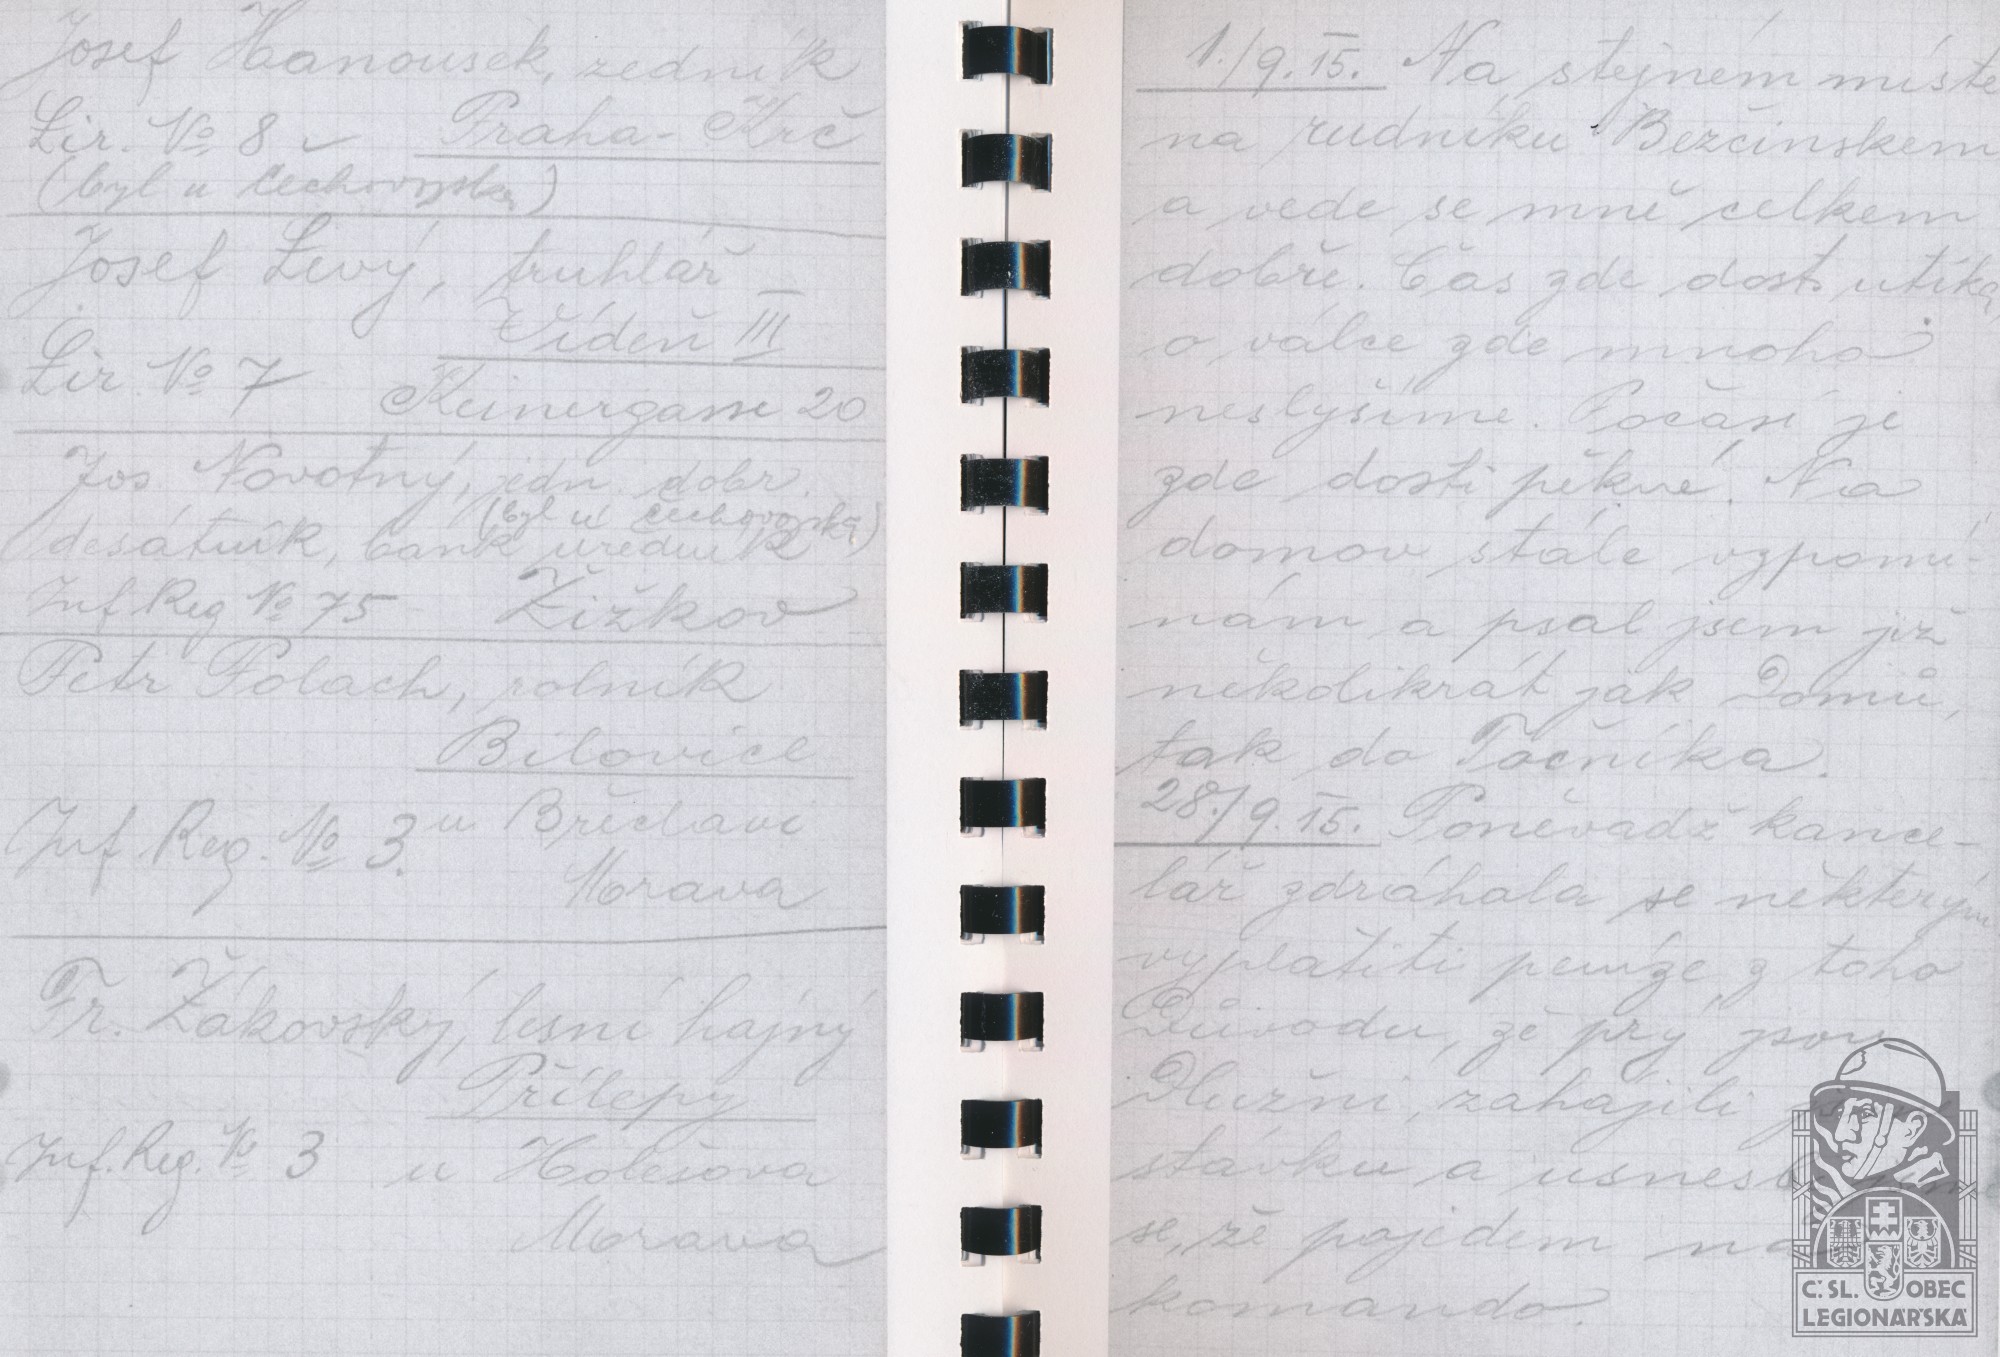 Josef Hanousek, zedník
Lir. No 8 Praha-Krč
(byl u Čechovojska)
Josef Levý, truhlář
Vídeň III
Lir. No 7 Keinergasse 20
Jos Novotný, jedn. dobr.
(byl u Čechovojska)
desátník, bank úředník
Inf Reg No 75 Žižkov
Petr Polach, rolník
Bilovice
Inf. Reg. No 3. u Břeclavi
Morava
Fr. Žákovský, lesní hajný
Přílepy
Inf. Reg. No 3 u Holešova
Morava
1./9. 15. Na stejném místě
na rudníku Bezčinskem
a vede se mně celkem
dobře. Čas zde dosti utíká,
o válce zde mnoho
neslyšíme. Počasí je
zde dosti pěkné. Na
domov stále vzpomí-
nám a psal jsem již
někdikrát jak Domů,
tak do Točníka.
28./9. 15. Poněvadž kance-
lář zdráhala se některým
vyplatiti peníze z toho
Důvodu, že prý jsou
Dlužni, zahájili
stávku a usnesli
se, že pojedem na
komando.
Č. SL. OBEC
LEGIONÁŘSKÁ